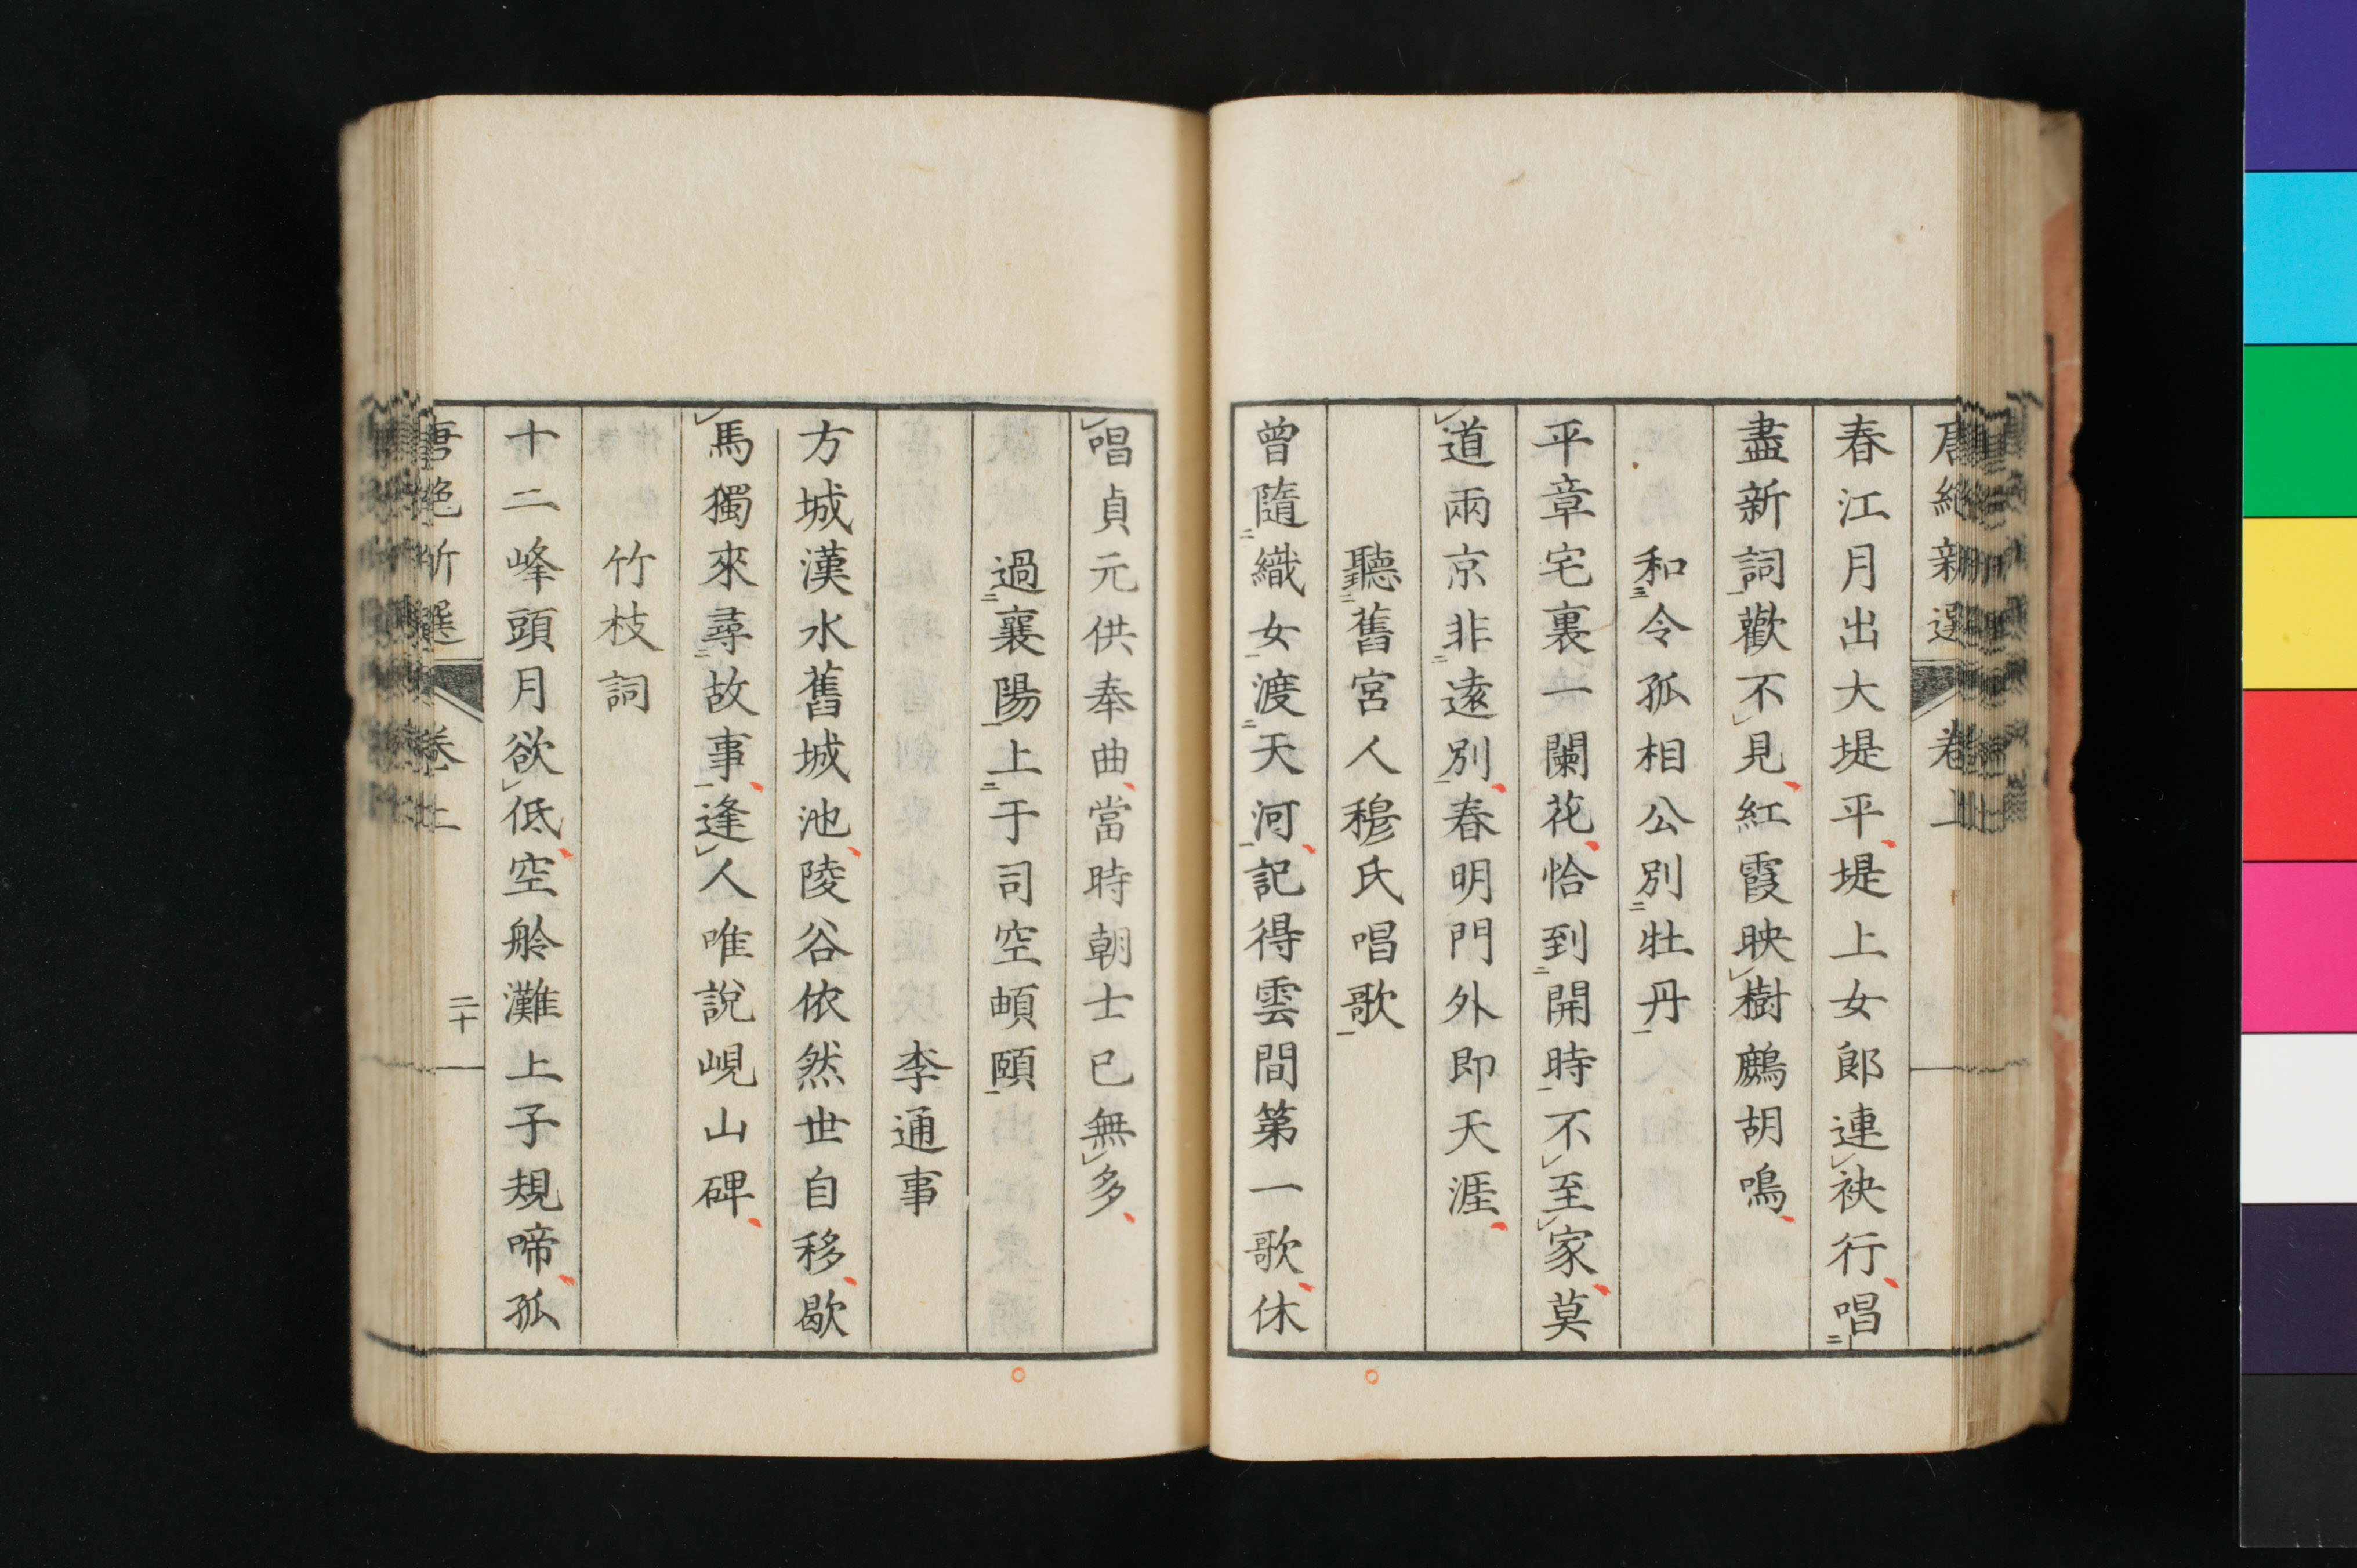 唐絶新選 卷上
春江月出大堤平堤上女郎連袂行唱
盡新詞歡不見紅霞映樹鷓胡鳴
和令狐相公別牡丹
平章宅裏一闌花恰到開時不至家莫
道兩京非遠別春明門外即天涯
聽舊宮人穆氏唱歌
曾隨織女渡天河記得雲間第一歌休
唱貞元供奉曲當時朝士已無多
過襄陽上于司空頔頤
李通事
方城漢水舊城池陵谷依然世自移歇
馬獨來尋故事逢人唯說峴山碑
竹枝詞
十二峰頭月欲低空舲灘上子規啼孤
唐絶新選 卷上 二十